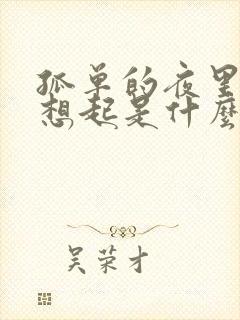 孤单的夜里
想起是什麼
吴荣才